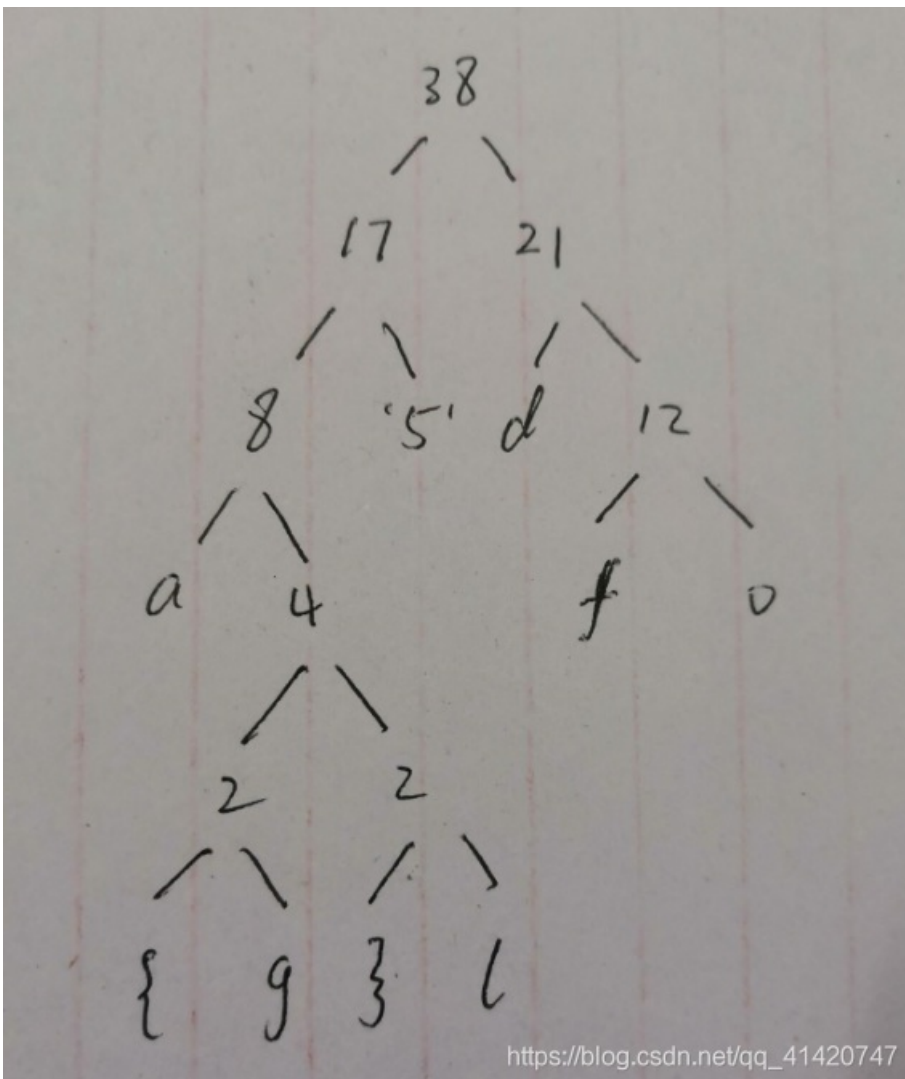 38
17 21
8 '5' d 12
a 4 f 0
2 2
{ g } l
https://blog.csdn.net/qq_41420747